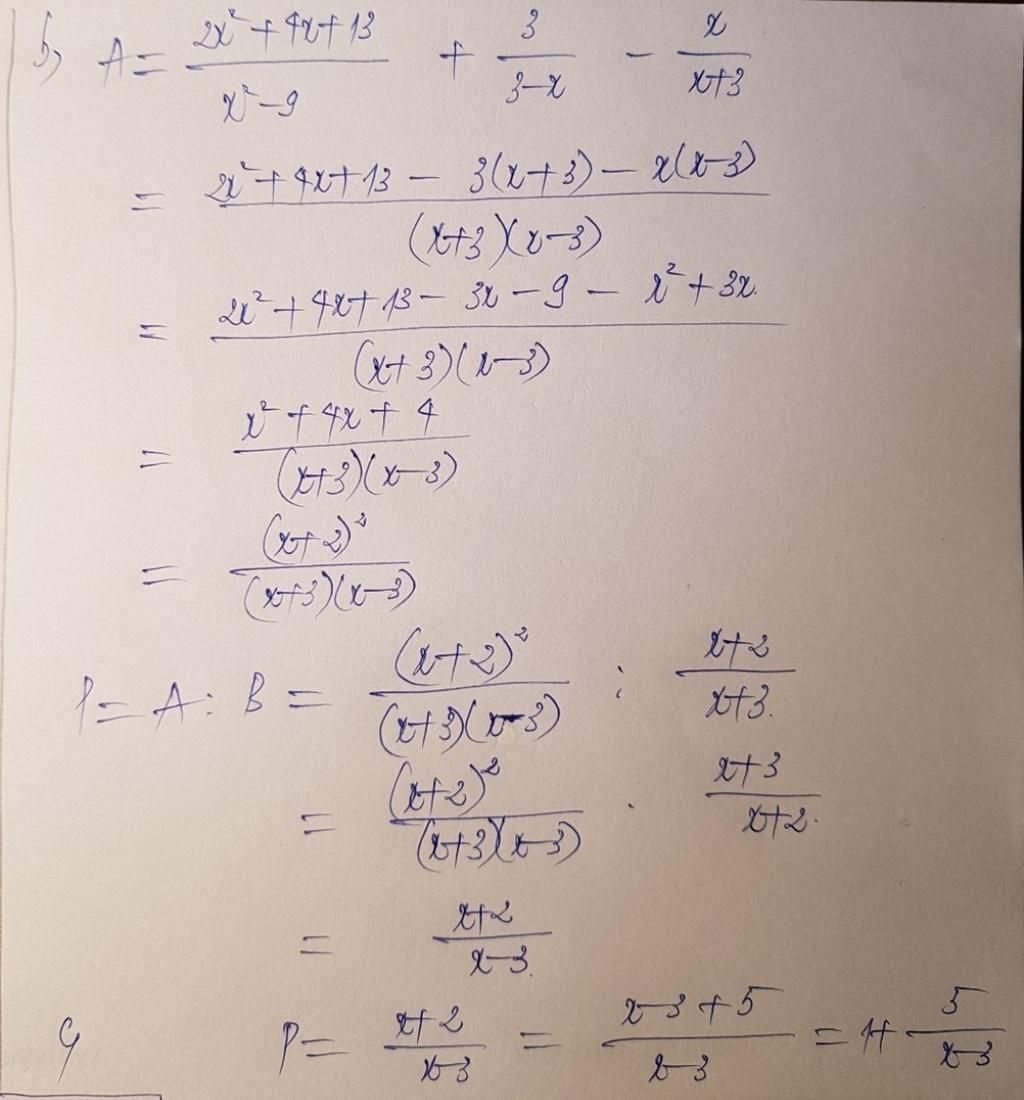 b, A = (2x² + 4x + 13)/(x² - 9) + 3/(3 - x) - x/(x + 3)
= (2x² + 4x + 13 - 3(x + 3) - x(x - 3))/((x + 3)(x - 3))
= (2x² + 4x + 13 - 3x - 9 - x² + 3x)/((x + 3)(x - 3))
= (x² + 4x + 4)/((x + 3)(x - 3))
= (x + 2)²/((x + 3)(x - 3))
P = A : B = (x + 2)²/((x + 3)(x - 3)) : (x + 2)/(x + 3)
= (x + 2)²/((x + 3)(x - 3)) . (x + 3)/(x + 2)
= (x + 2)/(x - 3)
c, P = (x + 2)/(x - 3) = (x - 3 + 5)/(x - 3) = 1 + 5/(x - 3)